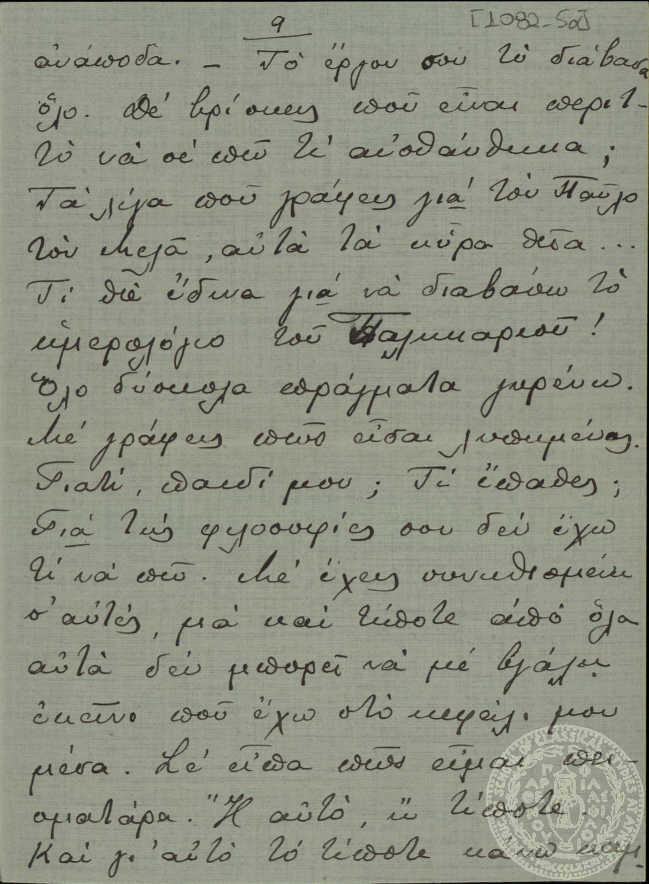 9
[1082-5α]
ἀνάποδα. – Τὸ ἔργον σου τὸ διάβασα
ὅλο. Θὲ βρίσκεις ποῦ εἶναι περιτ-
τὸ νὰ σὲ πῶ τί αἰσθάνθηκα;
Τὰ λίγα ποῦ γράφεις γιὰ τὸν Παῦλο
τὸν Μελᾶ, αὐτὰ τὰ κύρα θεῖα...
Τί θὲ ἔδινα γιὰ νὰ διαβάσω τὸ
ἡμερολόγιο τοῦ Παλικαριοῦ!
Ὅλο δύσκολα πράγματα γυρεύω.
Μὲ γράφεις πῶς εἶσαι λυπημένος.
Γιατί, παιδί μου; Τί ἔπαθες;
Γιὰ τὶς φιλοσοφίες σου δὲν ἔχω
τί νὰ πῶ. Μὲ ἔχεις συνηθισμένη
σ' αὐτές, μὰ καὶ τίποτε ἀπὸ ὅλα
αὐτὰ δὲν μπορεῖ νὰ μὲ βγάλῃ
ἐκεῖνο ποῦ ἔχω στὸ κεφάλι μου
μέσα. Σὲ εἶπα πῶς εἶμαι πει-
σματάρα. Ἢ αὐτό, ἢ τίποτε.
Καὶ γι' αὐτὸ τὸ τίποτε κάνω καμ-